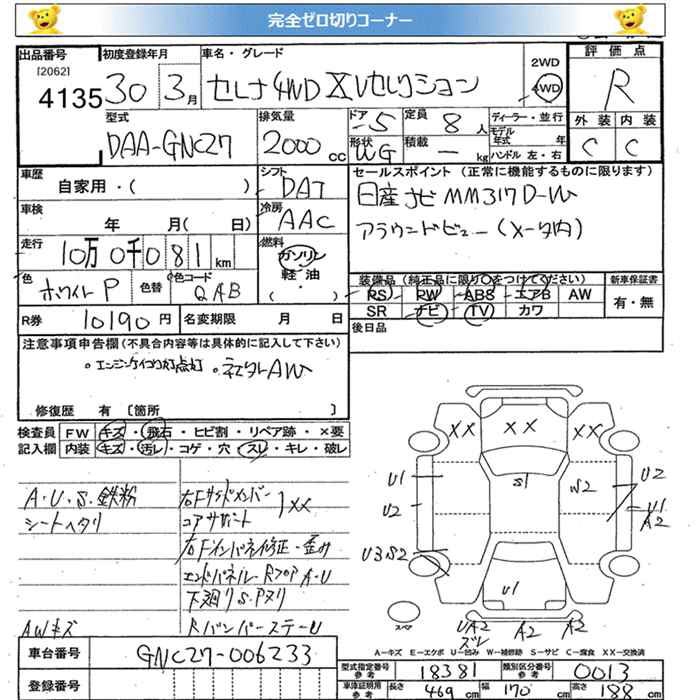 完全ゼロ切りコーナー
出品番号 初度登録年月 車名・グレード 2WD 評価点
[2062]
4135 30 3月 セレナ4WD XVセレクション 4WD R
型式 排気量 ドア 定員 ディーラー・並行 外装 内装
DAA-GNC27 2000cc 5 8人 モデル年式 年 C C
形状 WG 積載 ー kg ハンドル 左・右
車歴 シフト セールスポイント (正常に機能するものに限ります)
自家用・( ) DAT 日産ナビ MM317D-W
車検 冷房 アラウンドビュー(メータ内)
年 月( 日) AAC
走行 燃料
10万0千081km ガソリン
色 色替 色コード 軽・油 装備品 (純正品に限り○をつけてください) 新車保証書
ホワイトP QAB ( ) RS RW ABS エアB AW 有・無
SR ナビ TV カワ
R券 10190円 名変期限 月 日 後日品
注意事項申告欄 (不具合内容等は具体的に記入して下さい)
・エンジンチェック灯点灯 ・ネエタレAW
修復歴 有 [箇所 ]
検査員 FW キズ・飛石・ヒビ割・リペア跡・×要
記入欄 内装 キズ・汚レ・コゲ・穴・スレ・キレ・破レ
XX XX XX
U1 S1 S2 U2
A・U・S・鉄粉 右Fサイドメンバー
シートヘタリ コアサポート XX
U2 U1
A2
右Fインパネ修正・歪み
U3S2
エンドパネル RフロアA・U
下廻りS・Pヌリ U1
AWキズ RバンパーステーU
スペア UA2 A2 A2
ズレ
A－キズ E－エクボ U－凹み W－補修跡 S－サビ C－腐食 XX－交換済
車台番号 GNC27-006233
型式指定番号 参考 18381 類別区分番号 参考 0013
登録番号 車庫証明用 参考 長さ 469cm 幅 170cm 高さ 188cm